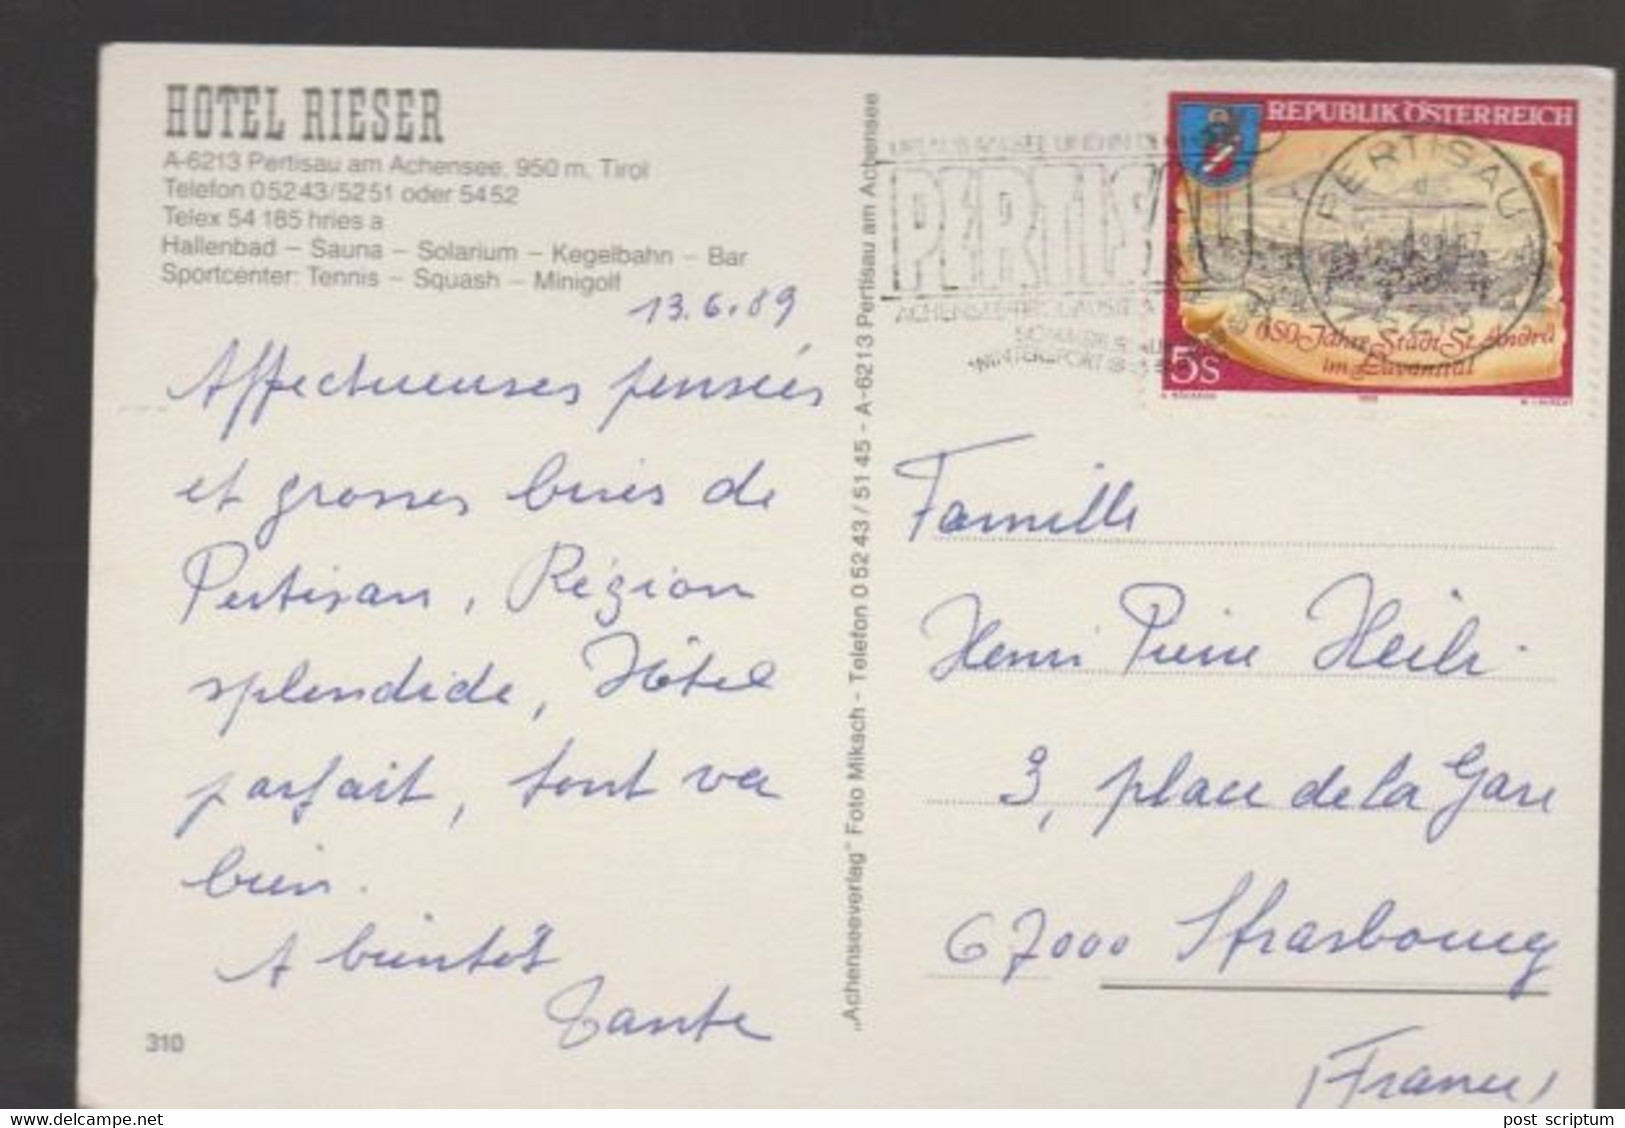 HOTEL RIESER
A-6213 Pertisau am Achensee, 950 m, Tirol
Telefon 0 52 43/52 51 oder 54 52
Telex 54 185 hries a
Hallenbad – Sauna – Solarium – Kegelbahn – Bar
Sportcenter: Tennis – Squash – Minigolf
13.6.89
Affectueuses pensées
et grosses bises de
Pertisau, Région
splendide, Hôtel
parfait, tout va
bien.
A bientôt
Tante
310
„Achenseeverlag" Foto Miksch - Telefon 0 52 43 / 51 45 - A-6213 Pertisau am Achensee
PERTISAU
WINTERSPORT
REPUBLIK ÖSTERREICH
PERTISAU
650 Jahre Stadt St. Andrä
im Lavanttal
5S
Famille
Henri Pierre
3, place de la Gare
67000 Strasbourg
(France)
post scriptum